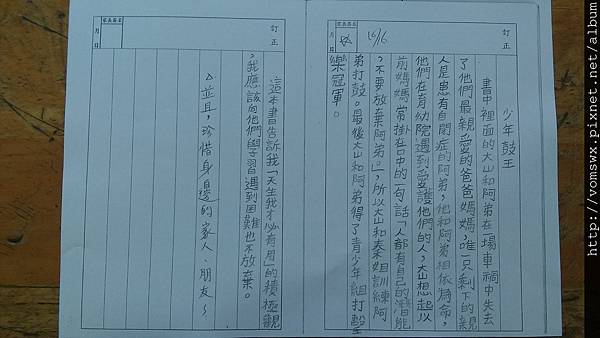 訂正
家長簽名
月
日
16/16
少年鼓王
書中裡面的大山和阿弟在一場車禍中失去
了他們最親愛的爸爸媽媽,唯一只剩下的親
人是患有自閉症的阿弟,他和阿弟相依為命,
他們在育幼院遇到愛護他們的人,大山想起以
前媽媽常掛在口中的一句話「人都有自己的潛能
,不要放棄阿弟。」,所以大山和秦姐訓練阿
弟打鼓。最後大山和阿弟得了青少年組打擊
樂冠軍。
訂正
家長簽名
月
日
這本書告訴我「天生我才必有用」的積極觀
,我應該向他們學習遇到困難也不放棄。
△並且,珍惜身邊的家人、朋友~
http://vomswx.pixnet.net/album